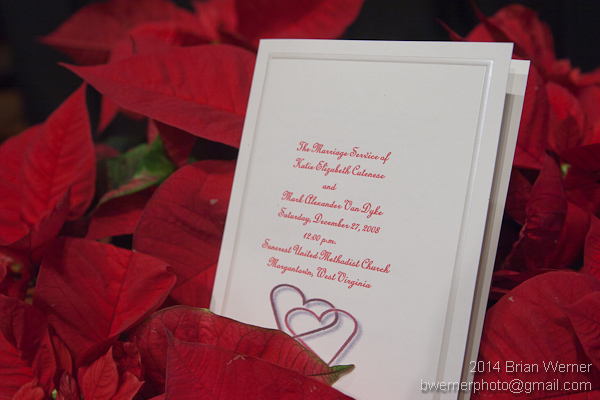 The Marriage Service of
Katie Elizabeth Catenese
and
Mark Alexander Van Dyke
Saturday, December 27, 2008
12:00 p.m.
Suncrest United Methodist Church
Morgantown, West Virginia
2014 Brian Werner
bwernerphoto@gmail.com